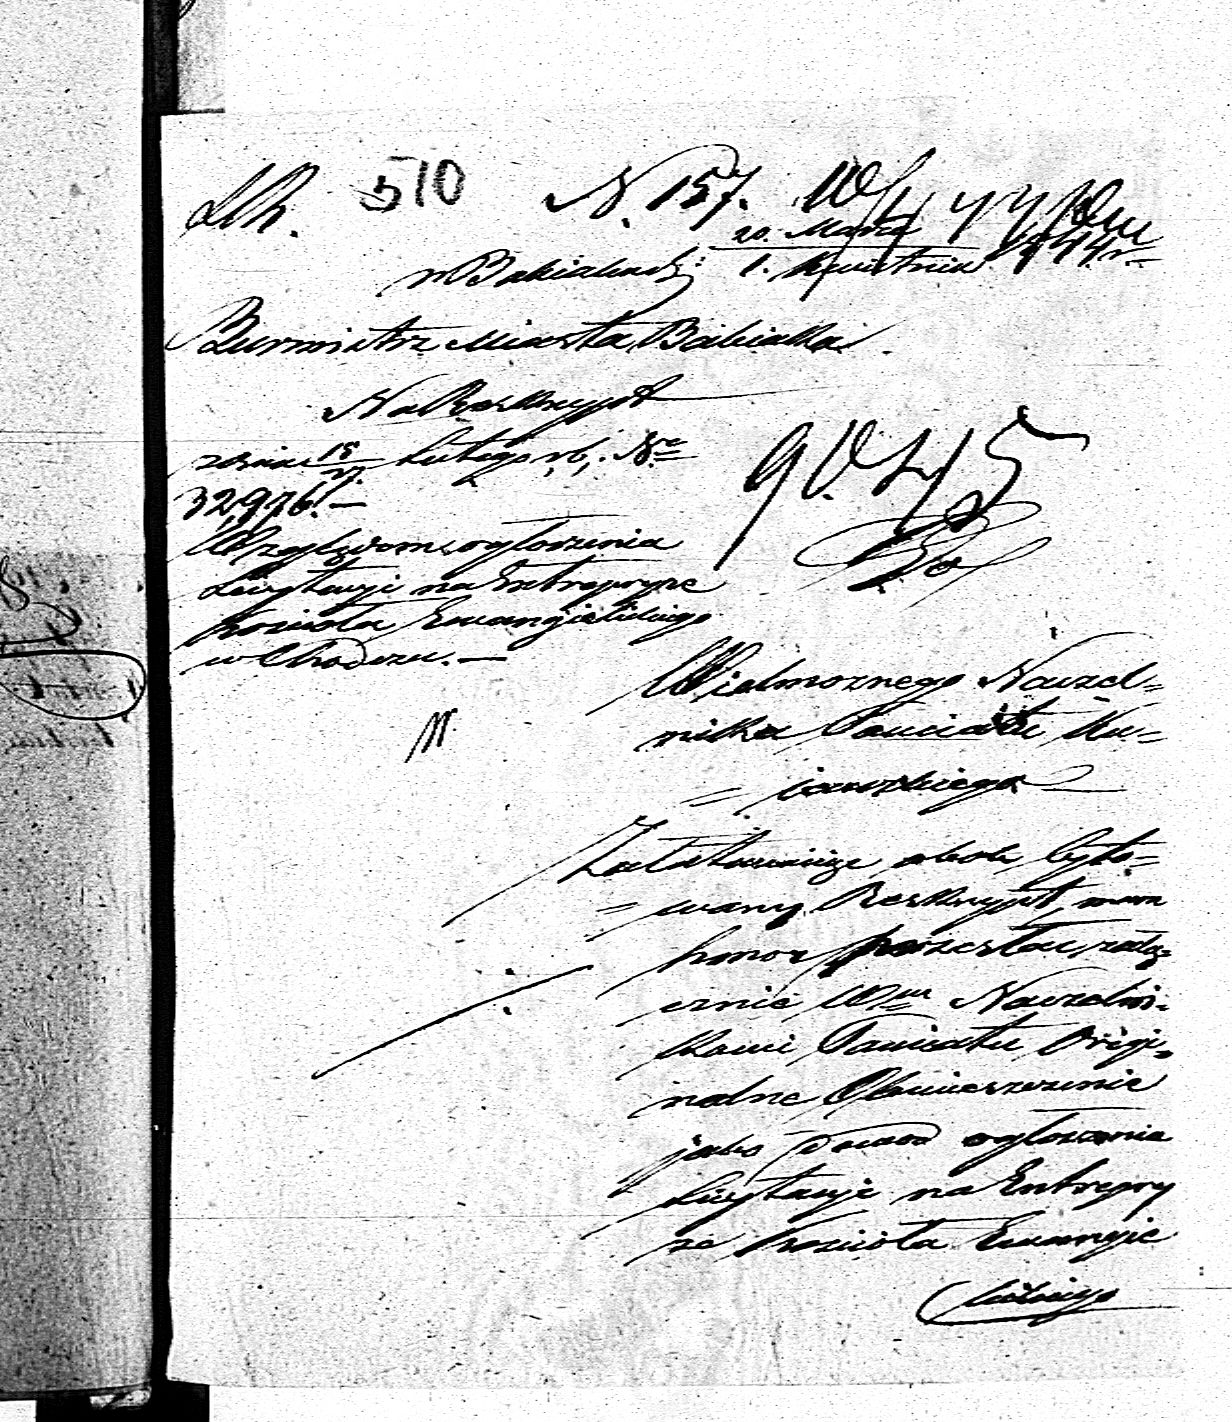 510 N. 157.
20. Marca
w Babiaku d: 1. Kwietnia 1844 r.
Burmistrz Miasta Babiaka
Na Reskrypt
z dnia 18 Lutego r. b. No
32,976. —
Względem ogłoszenia
Licytacyi na Entrepryze
Kościoła Ewangielickiego
w Chodczu. —
9045
Wielmożnego Naczel=
nika Powiatu Ku=
= jawskiego
Załatwiając obok cyto=
= wany Reskrypt, mam
honor przesłać załą=
cznie Wmu Naczelni=
kowi Powiatu Origi=
nalne Obwieszczenie
jako Dowód ogłoszenia
Licytacyi na Entrepry
ze Kościoła Ewangie
lickiego